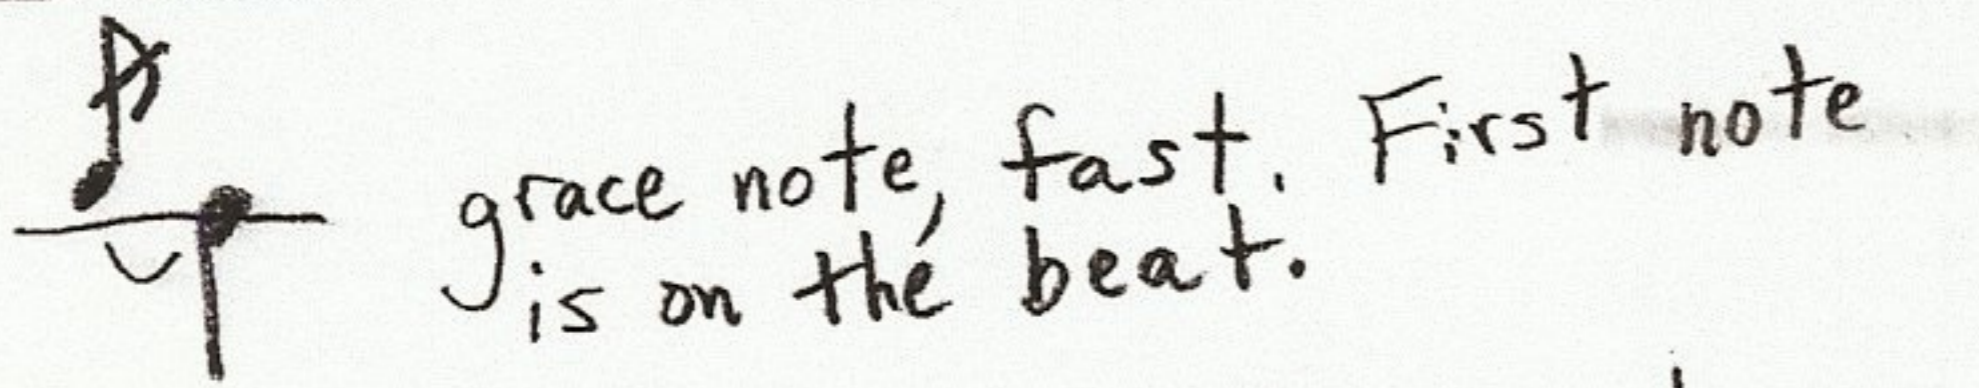 grace note, fast. First note
is on the beat.